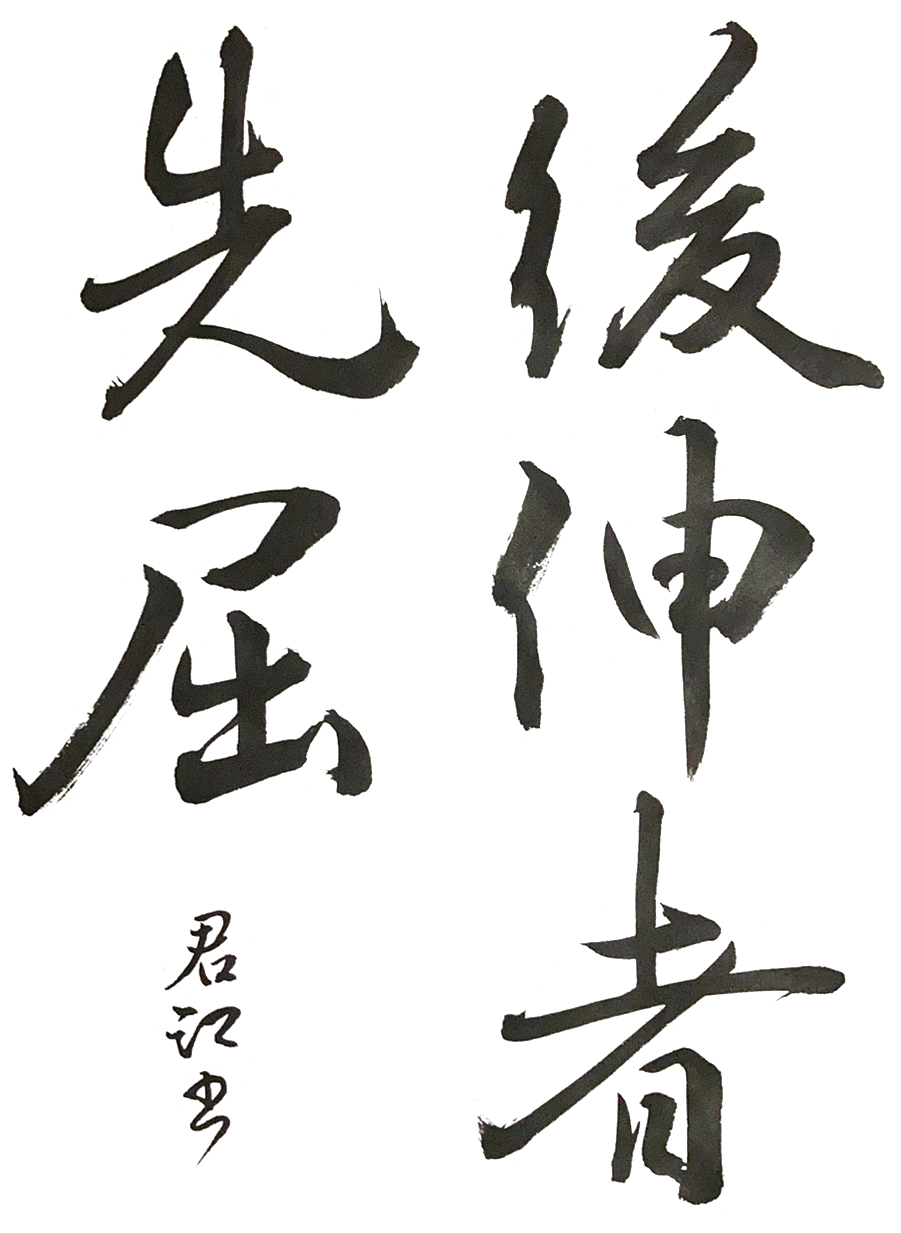 後伸者
先屈
君江书